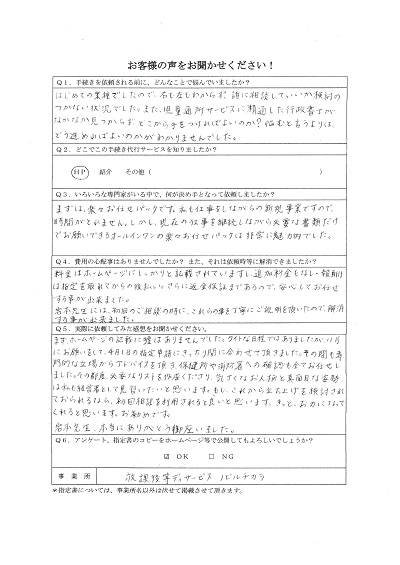 お客様の声をお聞かせください！
Q１．手続きを依頼される前に、どんなことで悩んでいましたか？
はじめての業種でしたので、右も左もわからず、誰に相談していいか検討の
つかない状況でした。また、児童通所サービスに精通した行政書士が
なかなか見つからず、どこから手をつければよいのか？悩むと言うよりは、
どう進めればよいのかがわかりませんでした。
Q２．どこでこの手続き代行サービスを知りましたか？
HP 紹介 その他（ ）
Q３．いろいろな専門家がいる中で、何が決め手となって依頼しましたか？
まずは、楽々お任せパックです。私も仕事をしながらの新規事業ですので、
時間がとれません。しかし、現在の仕事を継続しながら必要な書類だけ
でお願いできるオールインワンの楽々お任せパックは非常に魅力的でした。
Q４．費用の心配事はありませんでしたか？ また、それは依頼時等に解消できましたか？
料金はホームページにしっかりと記載されていますし、追加料金もなし・報酬
は指定書取れてからの後払い。さらに返金保証まであるので、安心してお任せ
する事が出来ました。
岩本先生には、初回のご相談の時に、これらの事を丁寧にご説明を頂いたので、解消
する事が出来ました。
Q５．実際に依頼してみた感想をお聞かせください。
まず、ホームページの記載に嘘はありませんでした。タイトな日程ではありましたが、11月
にお願いをして、4月1日の指定申請にきっちり間に合わせて頂きました。その間も専
門的な立場からアドバイスを頂き、保健所や消防署への確認も全てお任せし
ました。その都度、必要なリストを作成くださり、気さくなお人柄と真面目な姿勢
は私も経営者として見習いたいと思います。もし、これから立ち上げを検討され
ておられるなら、初回相談を利用されると良いと思います。きっと、お力になって
くれると思います。お勧めです。
岩本先生、本当にありがとう御座いました。
Q６．アンケート、指定書のコピーをホームページ等で公開してもよろしいでしょうか？
☑ OK □ NG
事 業 所 放課後等デイサービス ノビルチカラ
＊指定書については、事業所名以外は伏せて掲載させて頂きます。